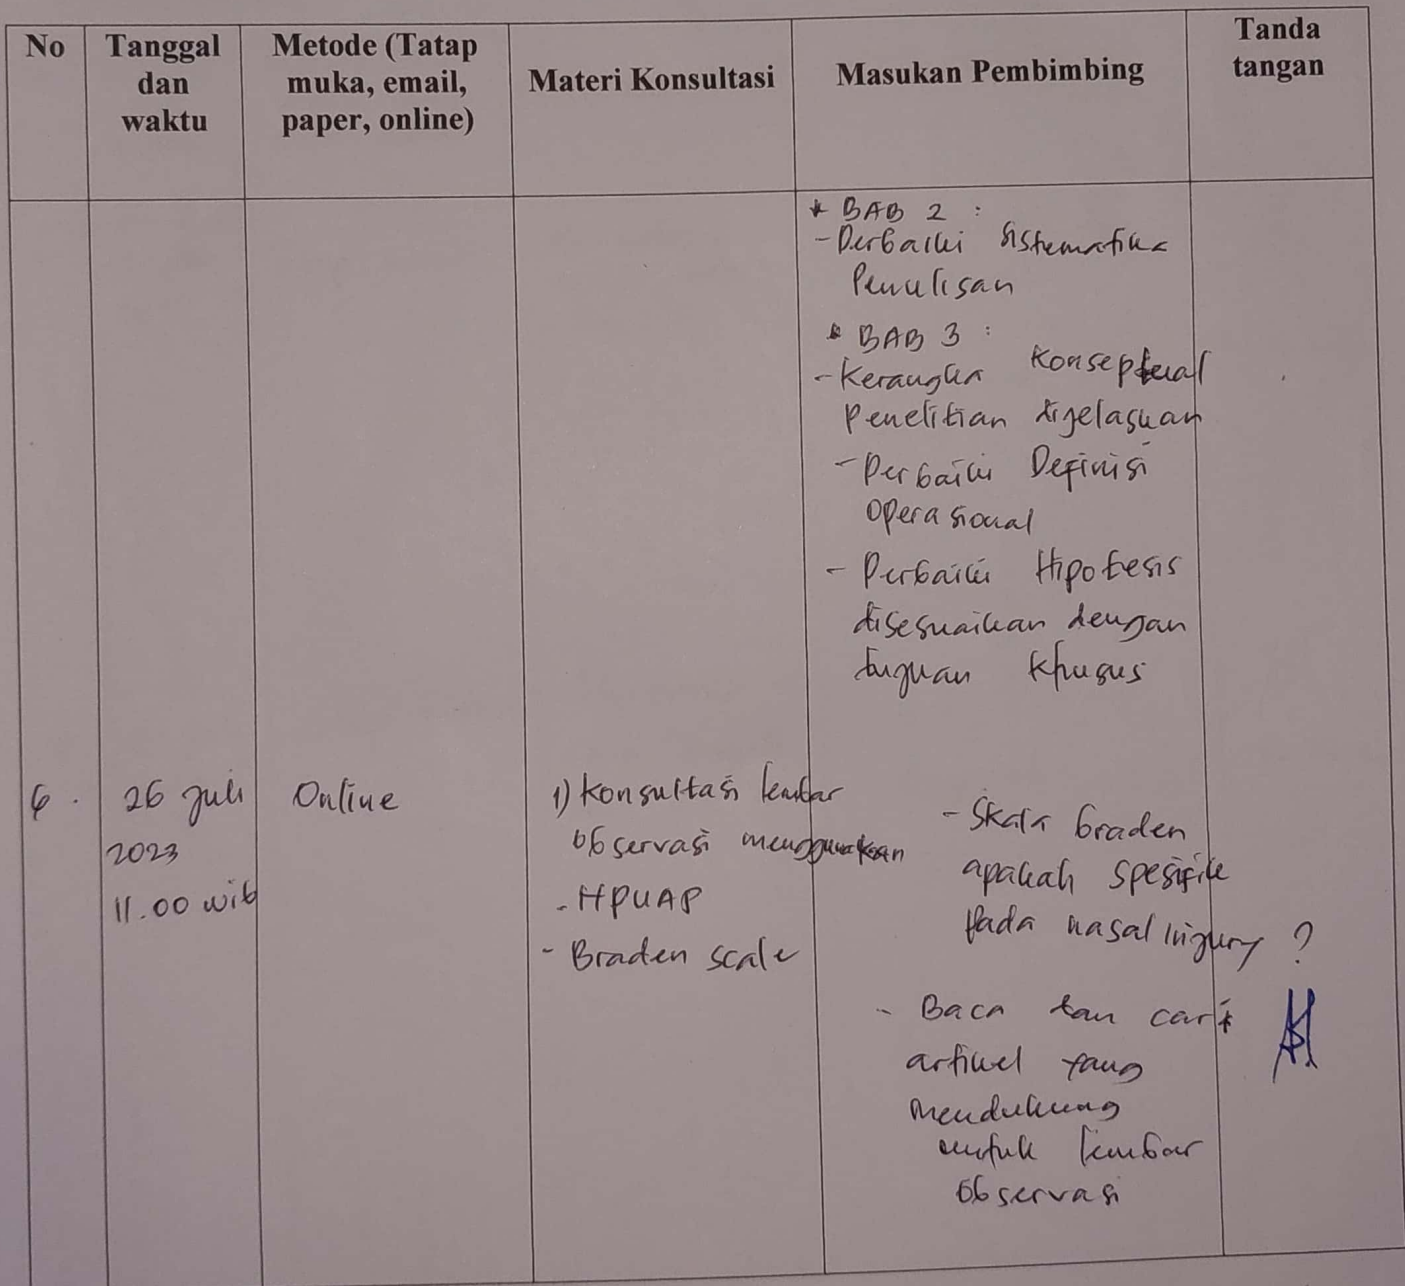 No
Tanggal
dan
waktu
Metode (Tatap
muka, email,
paper, online)
Materi Konsultasi
Masukan Pembimbing
Tanda
tangan
* BAB 2 :
- Perbaiki Sistematika
Penulisan
* BAB 3 :
- Kerangka Konseptual
Penelitian dijelaskan
- Perbaiki Definisi
Operasional
- Perbaiki Hipotesis
disesuaikan dengan
tujuan khusus
6.
26 Juli
2023
11.00 wib
Online
1) Konsultasi lembar
observasi menggunakan
- HPUAP
- Braden scale
- Skala braden
apakah spesifik
pada nasal injury ?
- Baca dan cari
artikel yang
mendukung
untuk lembar
observasi